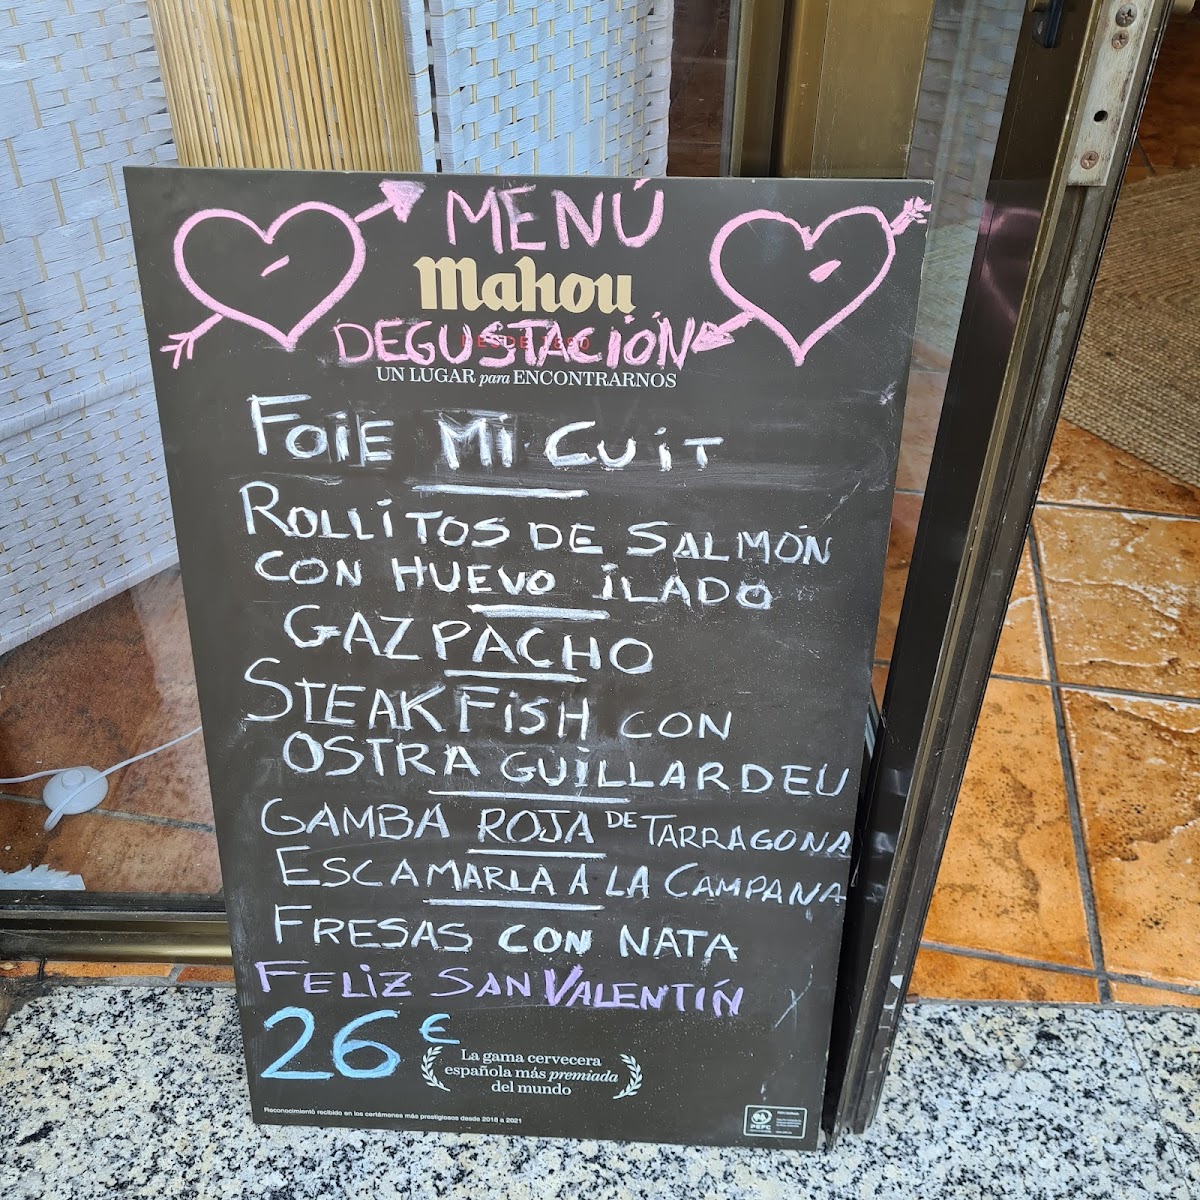 MENÚ
Mahou
DEGUSTACIÓN
UN LUGAR para ENCONTRARNOS
FOIE MI CUIT
ROLLITOS DE SALMÓN
CON HUEVO ILADO
GAZPACHO
STEAK FISH CON
OSTRA GUILLARDEU
GAMBA ROJA DE TARRAGONA
ESCAMARLA A LA CAMPANA
FRESAS CON NATA
FELIZ SAN VALENTÍN
26 €
La gama cervecera
española más premiada
del mundo
Reconocimiento recibido en los certámenes más prestigiosos desde 2018 a 2021
PEFC